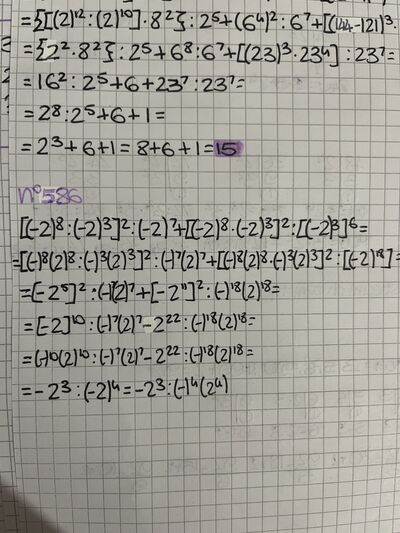 ={[(2)¹²:(2)¹⁰]·8²}:2⁵+(6⁴)²:6⁷+[(144-121)³·
={2²·8²}:2⁵+6⁸:6⁷+[(23)³·23⁴]:23⁷=
=16²:2⁵+6+23⁷:23⁷=
=2⁸:2⁵+6+1=
=2³+6+1=8+6+1=15
n°586
[(-2)⁸:(-2)³]²:(-2)⁷+[(-2)⁸·(-2)³]²:[(-2)³]⁶=
=[(-)⁸(2)⁸:(-)³(2)³]²:(-)⁷(2)⁷+[(-)⁸(2)⁸·(-)³(2)³]²:[(-2)¹⁸]=
=[-2⁵]²:(-)(2)⁷+[-2¹¹]²:(-)¹⁸(2)¹⁸=
=[-2]¹⁰:(-)⁷(2)⁷-2²²:(-)¹⁸(2)¹⁸=
=(-)¹⁰(2)¹⁰:(-)⁷(2)⁷-2²²:(-)¹⁸(2)¹⁸=
=-2³:(-2)⁴=-2³:(-)⁴(2⁴)